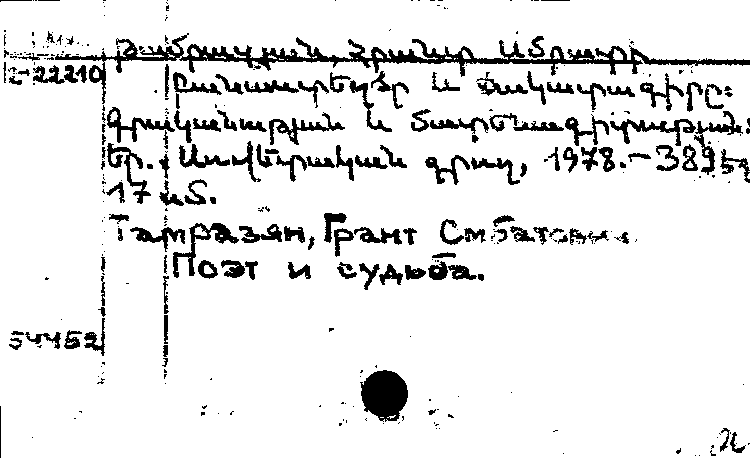 Թամրազյան, Հրանտ Սմբատի
2-22210
Բանաստեղծը և ճակատագիրը:
Գրականություն և մատենագիտություն:
Եր., Սովետական գրող, 1978.-389 էջ
17 սմ.
Тамразян, Грант Смбатович
Поэт и судьба.
54452